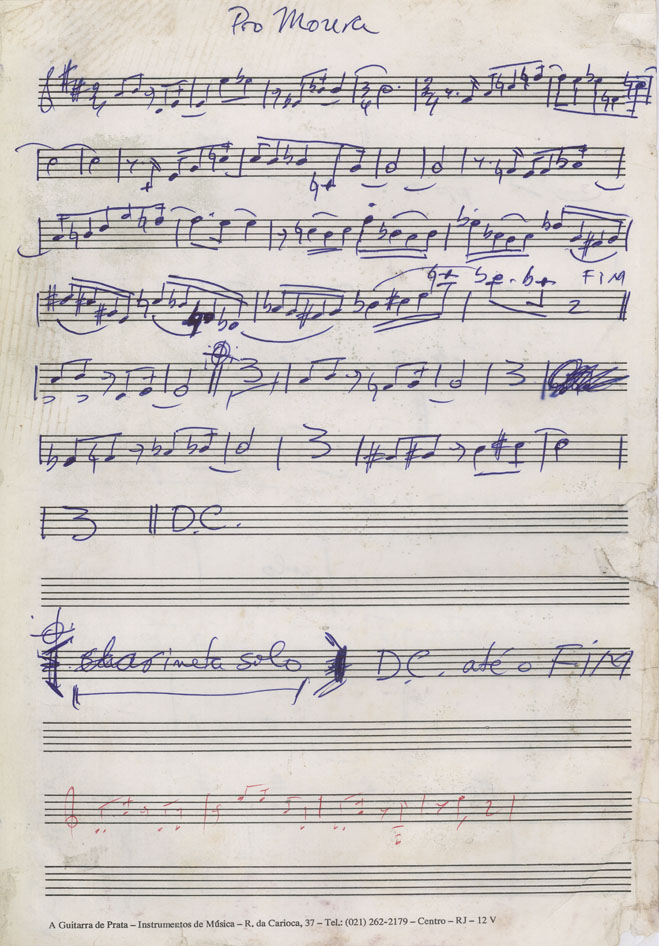 Pro Moura
2/4
3/4 2/4
FIM
2
3
3
3
3 D.C.
clarineta solo D.C. até o FIM
2
A Guitarra de Prata – Instrumentos de Música – R. da Carioca, 37 – Tel.: (021) 262-2179 – Centro – RJ – 12 V